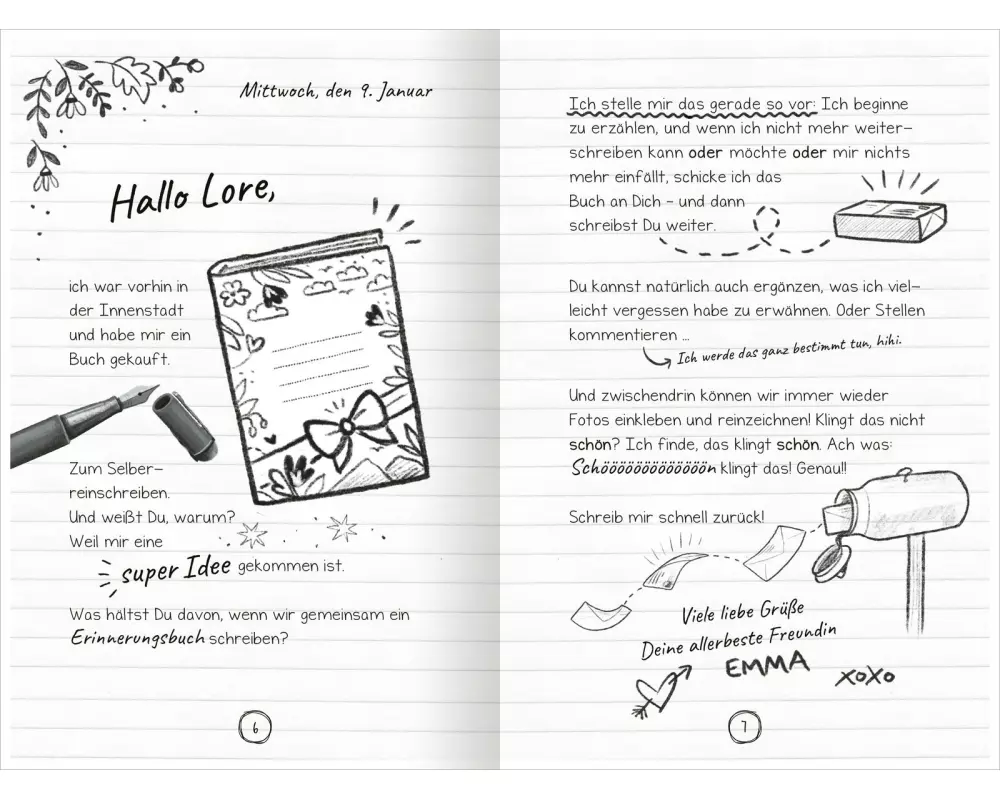 Mittwoch, den 9. Januar
Hallo Lore,
ich war vorhin in
der Innenstadt
und habe mir ein
Buch gekauft.
Zum Selber-
reinschreiben.
Und weißt Du, warum?
Weil mir eine
super Idee gekommen ist.
Was hältst Du davon, wenn wir gemeinsam ein
Erinnerungsbuch schreiben?
6
Ich stelle mir das gerade so vor: Ich beginne
zu erzählen, und wenn ich nicht mehr weiter-
schreiben kann oder möchte oder mir nichts
mehr einfällt, schicke ich das
Buch an Dich – und dann
schreibst Du weiter.
Du kannst natürlich auch ergänzen, was ich viel-
leicht vergessen habe zu erwähnen. Oder Stellen
kommentieren ...
Ich werde das ganz bestimmt tun, hihi.
Und zwischendrin können wir immer wieder
Fotos einkleben und reinzeichnen! Klingt das nicht
schön? Ich finde, das klingt schön. Ach was:
Schööööööööööööön klingt das! Genau!!
Schreib mir schnell zurück!
Viele liebe Grüße
Deine allerbeste Freundin
EMMA
xoxo
7